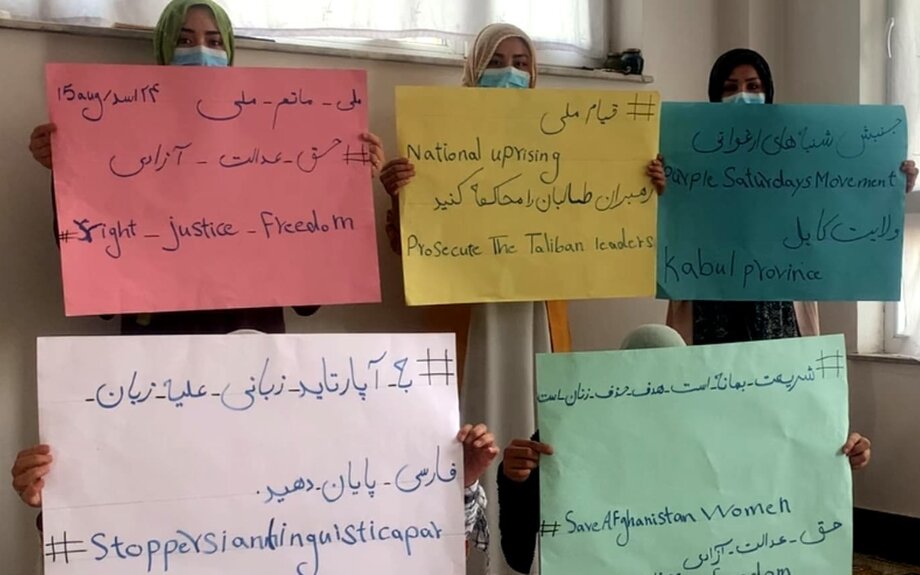 15 aug/اسد ۲۴
ملی - ماتم - ملی
#حق - عدالت - آزادی
#right - justice - Freedom
#قیام ملی
National uprising
رهبران طالبان را محاکمه کنید
Prosecute The Taliban leaders
جنبش شنبه های ارغوانی
Purple Saturdays Movement
ولایت کابل
Kabul province
#به - آپارتاید - زبانی - علیه - زبان -
فارسی - پایان - دهید.
#Stoppersianlinguisticapar
#شریعت - بهانه - است - هدف - حذف - زنان - است
#SaveAfghanistan Women
حق - عدالت - آزادی